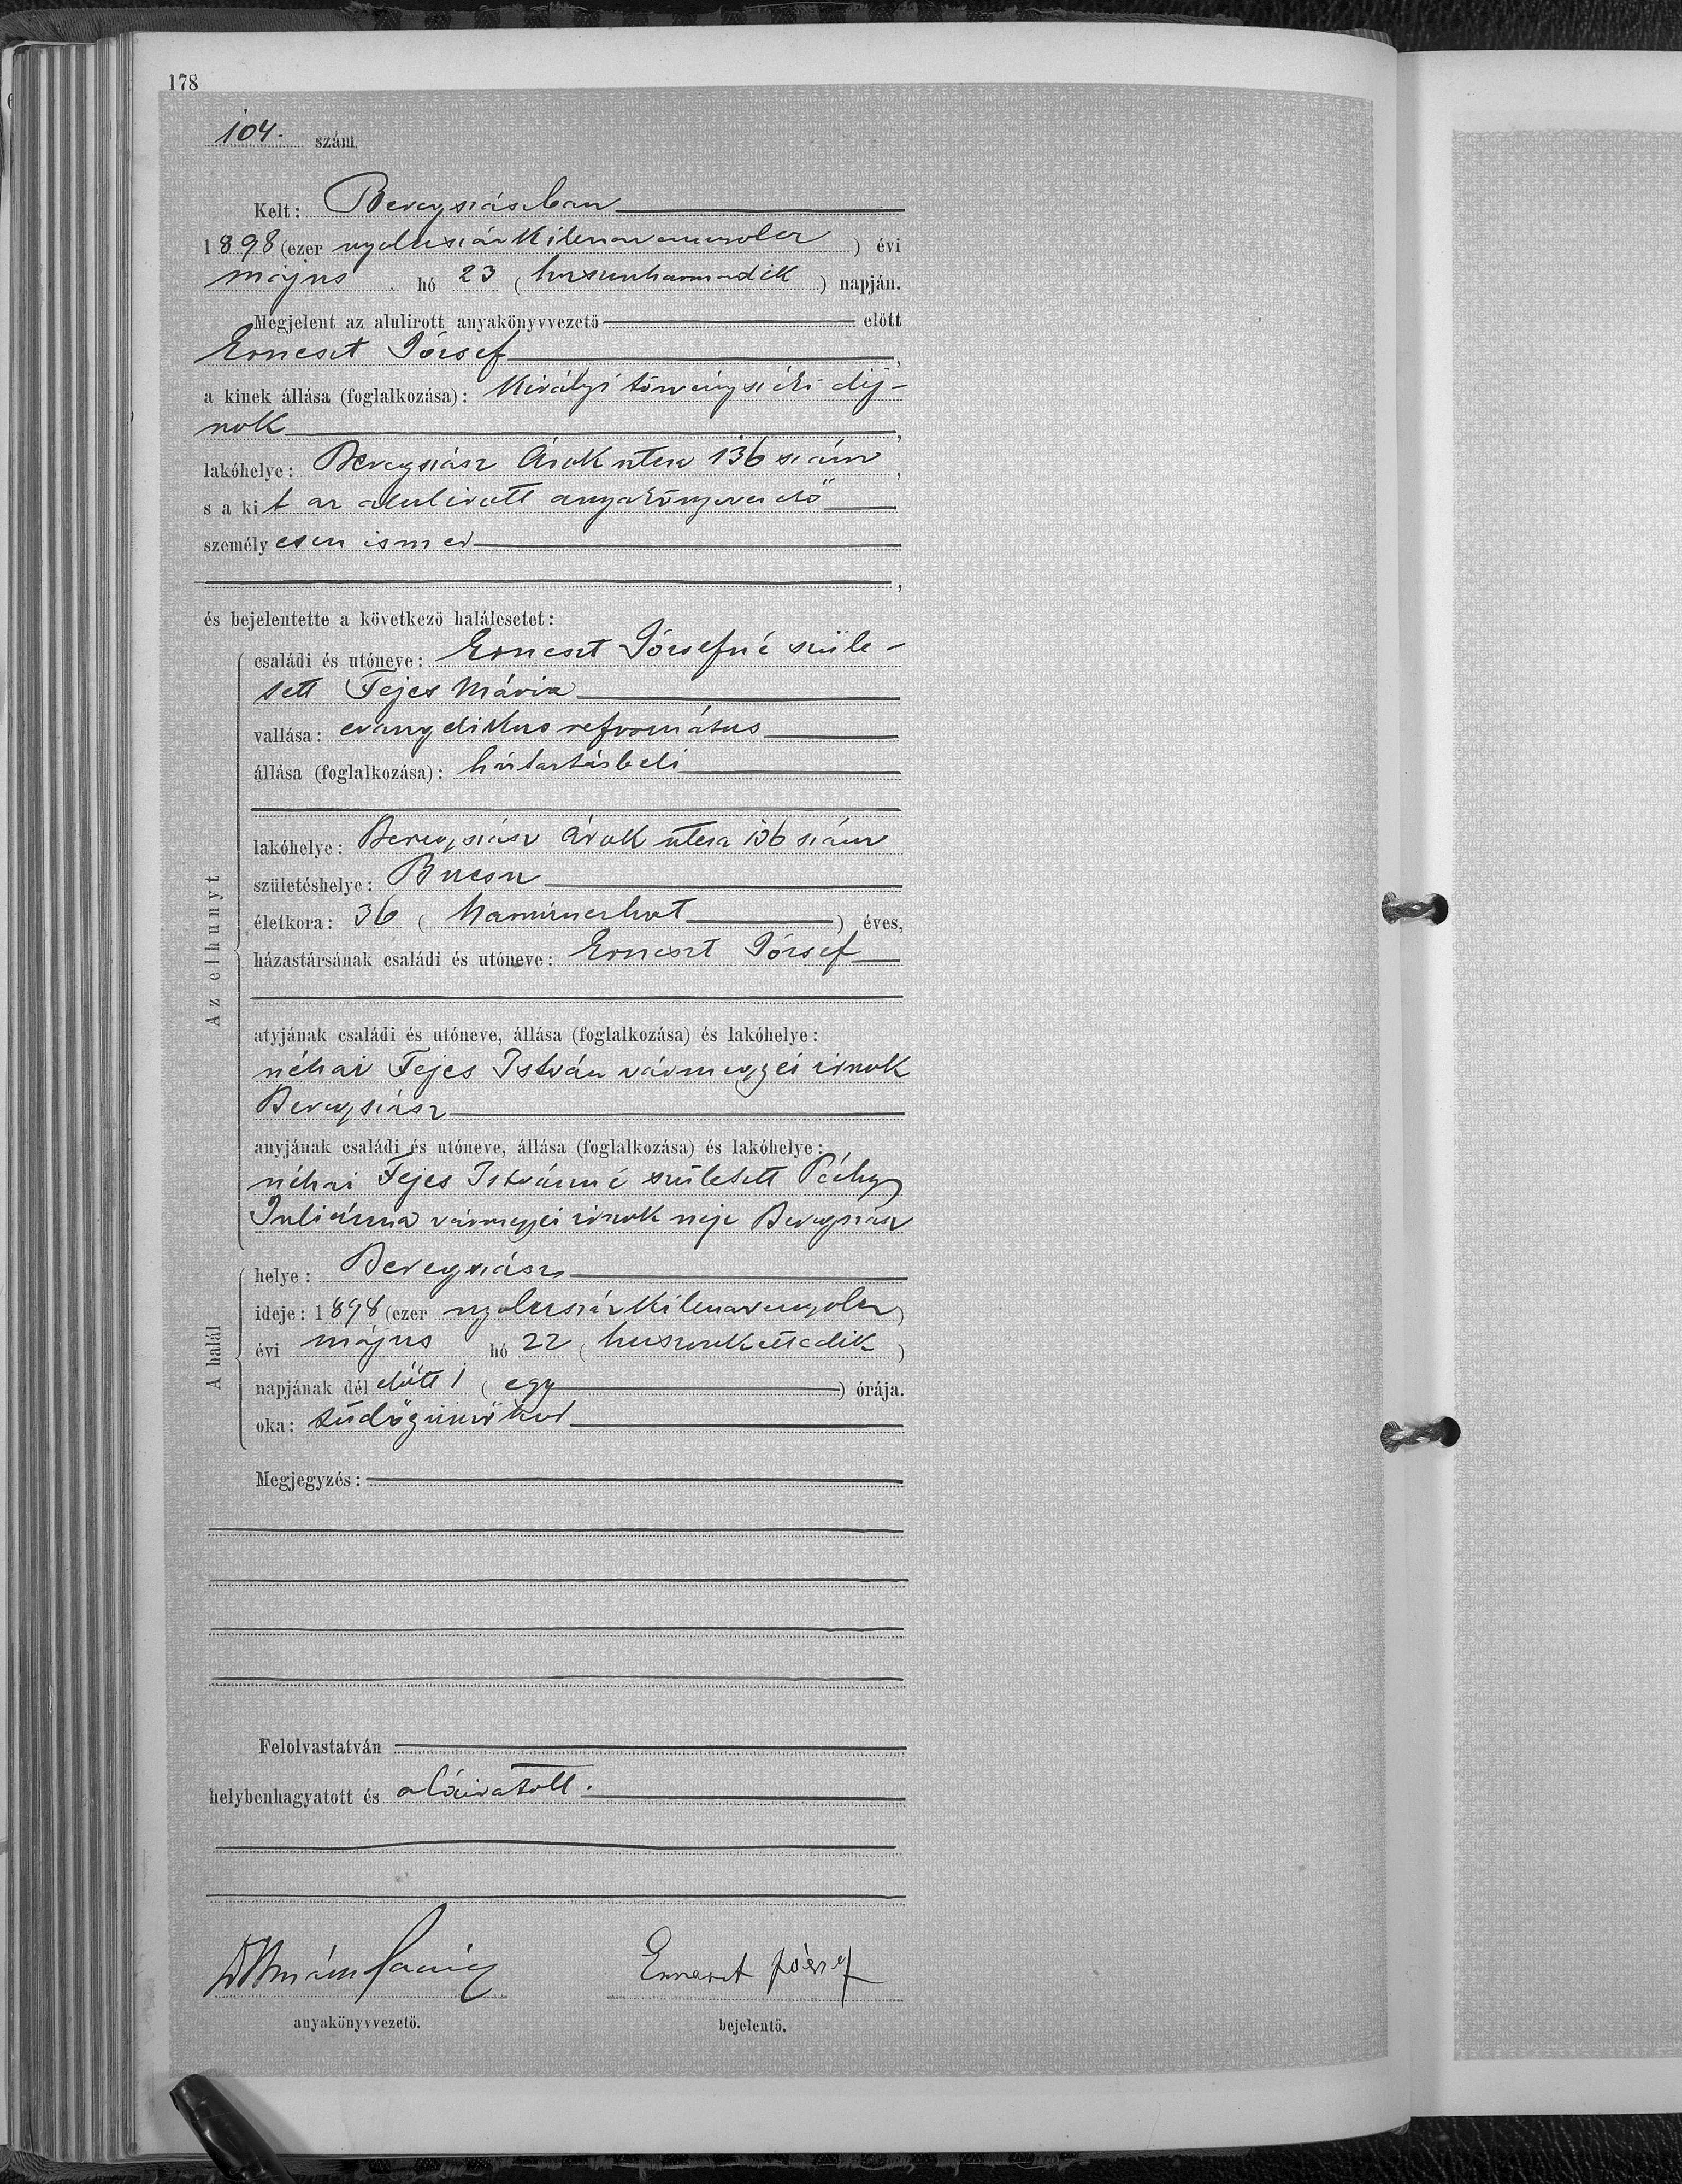 178
104. szám.
Kelt: Beregszászban
1898 (ezer nyolcszázkilencvennyolcz) évi
május hó 23 (huszonharmadik) napján.
Megjelent az alulirott anyakönyvvezető előtt
Erneszt József,
a kinek állása (foglalkozása): királyi törvényszéki dij-
nok,
lakóhelye: Beregszász Árok utcza 136 szám,
s a kit az alulirott anyakönyvvezető
személyesen ismer
,
és bejelentette a következő halálesetet:
Az elhunyt
családi és utóneve: Erneszt Józsefné szüle-
tett Fejes Mária
vallása: evangelikus református
állása (foglalkozása): háztartásbeli
lakóhelye: Beregszász Árok utcza 136 szám
születéshelye: Bucsu
életkora: 36 (harminczhat) éves,
házastársának családi és utóneve: Erneszt József
atyjának családi és utóneve, állása (foglalkozása) és lakóhelye:
néhai Fejes István vármegyei irnok
Beregszász
anyjának családi és utóneve, állása (foglalkozása) és lakóhelye:
néhai Fejes Istvánné született Péchy
Juliánna vármegyei irnok neje Beregszász
A halál
helye: Beregszász
ideje: 1898 (ezer nyolcszázkilencvennyolcz)
évi május hó 22 (huszonkettedik)
napjának dél előtt 1 (egy) órája.
oka: tüdőgümőkor
Megjegyzés:
Felolvastatván
helybenhagyatott és aláiratott.
Erneszt József
anyakönyvvezető.
bejelentő.